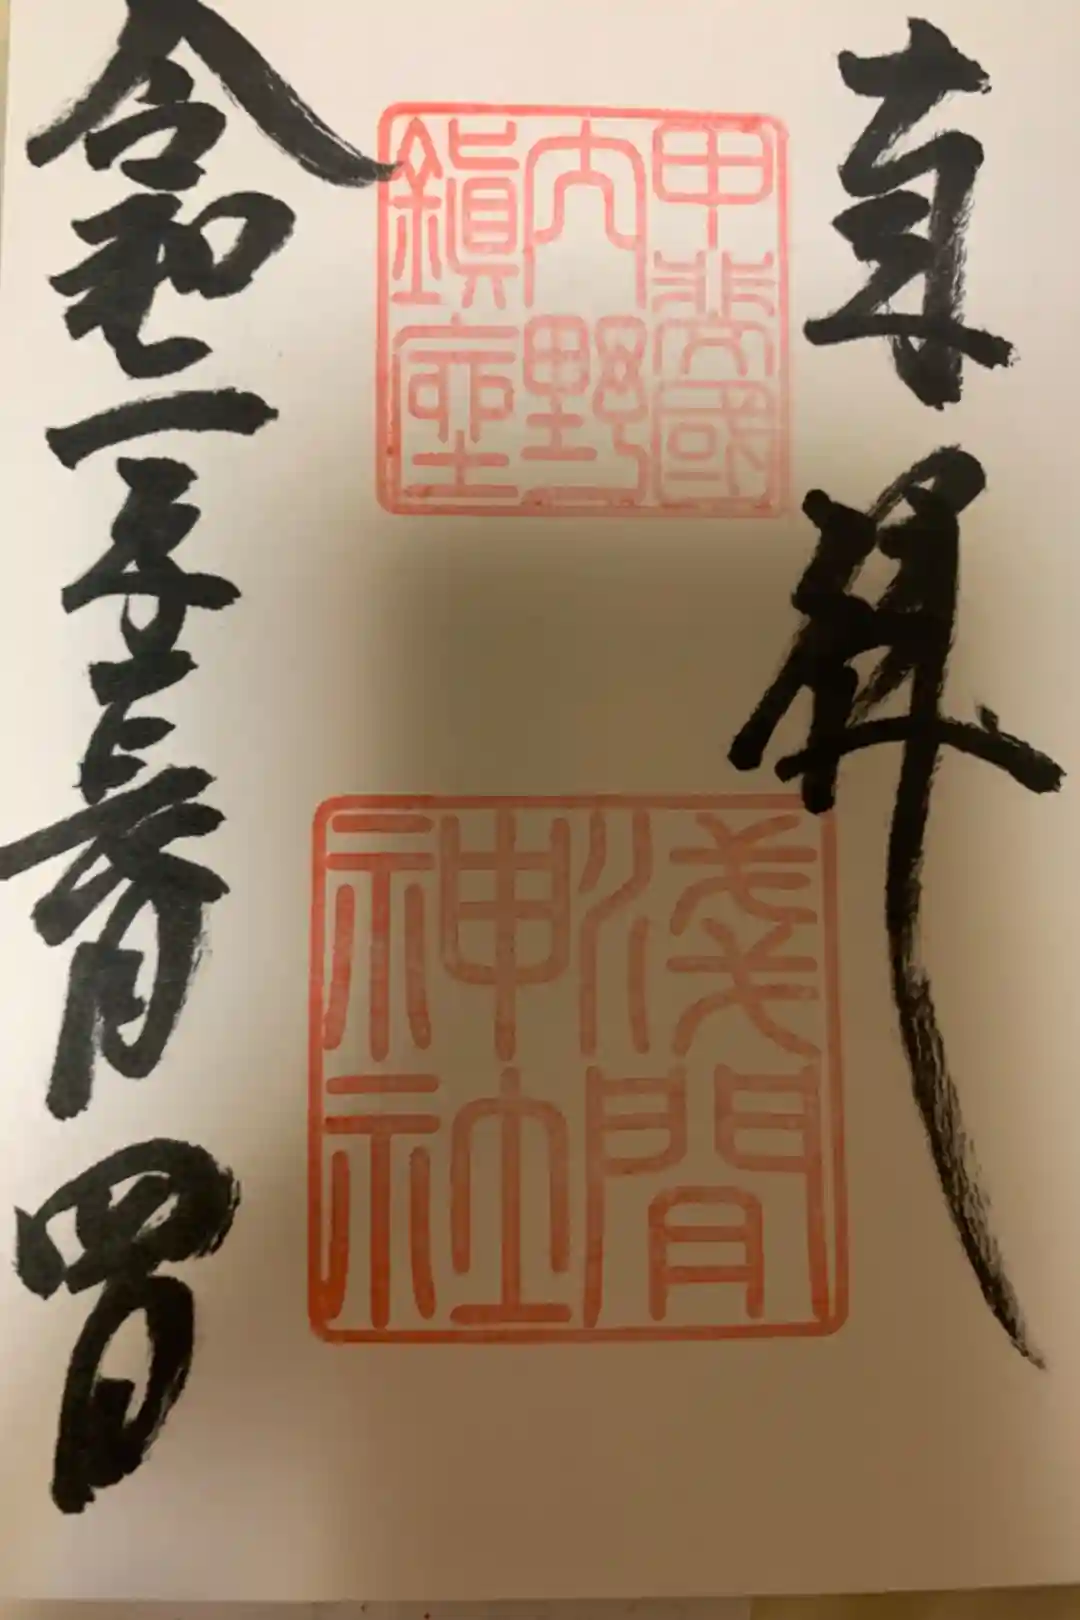 奉拝
甲斐國
内野
鎮座
淺間
神社
令和 年 月四日